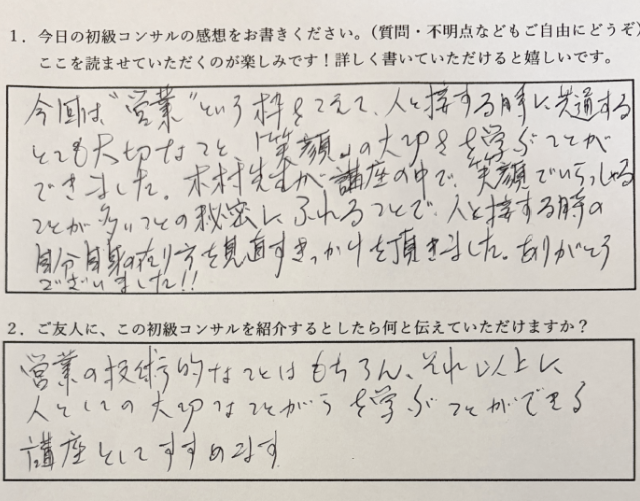 1．今日の初級コンサルの感想をお書きください。（質問・不明点などもご自由にどうぞ）
ここを読ませていただくのが楽しみです！詳しく書いていただけると嬉しいです。
今回は"営業"という枠をこえて、人と接する時に共通する
とても大切なこと『笑顔』の大切さを学ぶことが
できました。木村先生が講座の中で、笑顔でいらっしゃる
ことが多いことの秘密にふれることで、人と接する時の
自分自身の在り方を見直すきっかけを頂きました。ありがとう
ございました!!
2．ご友人に、この初級コンサルを紹介するとしたら何と伝えていただけますか？
営業の技術的なことはもちろん、それ以上に
人としての大切なことがらを学ぶことができる
講座としてすすめます